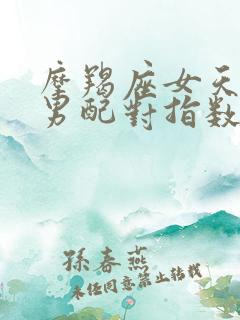 摩羯座女天
男配對指数
孫春燕
未经同意禁止转载